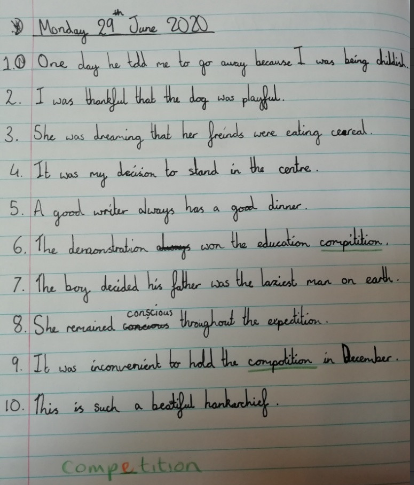 Monday 29th June 2020
1. One day he told me to go away because I was being childish.
2. I was thankful that the dog was playful.
3. She was dreaming that her freinds were eating cereal.
4. It was my decision to stand in the centre.
5. A good writer always has a good dinner.
6. The demonstration always won the education compitition.
7. The boy decided his father was the laziest man on earth.
conscious
8. She remained concious throughout the expedition.
9. It was inconvenient to hold the compotition in December.
10. This is such a beatiful hankarchief.
competition